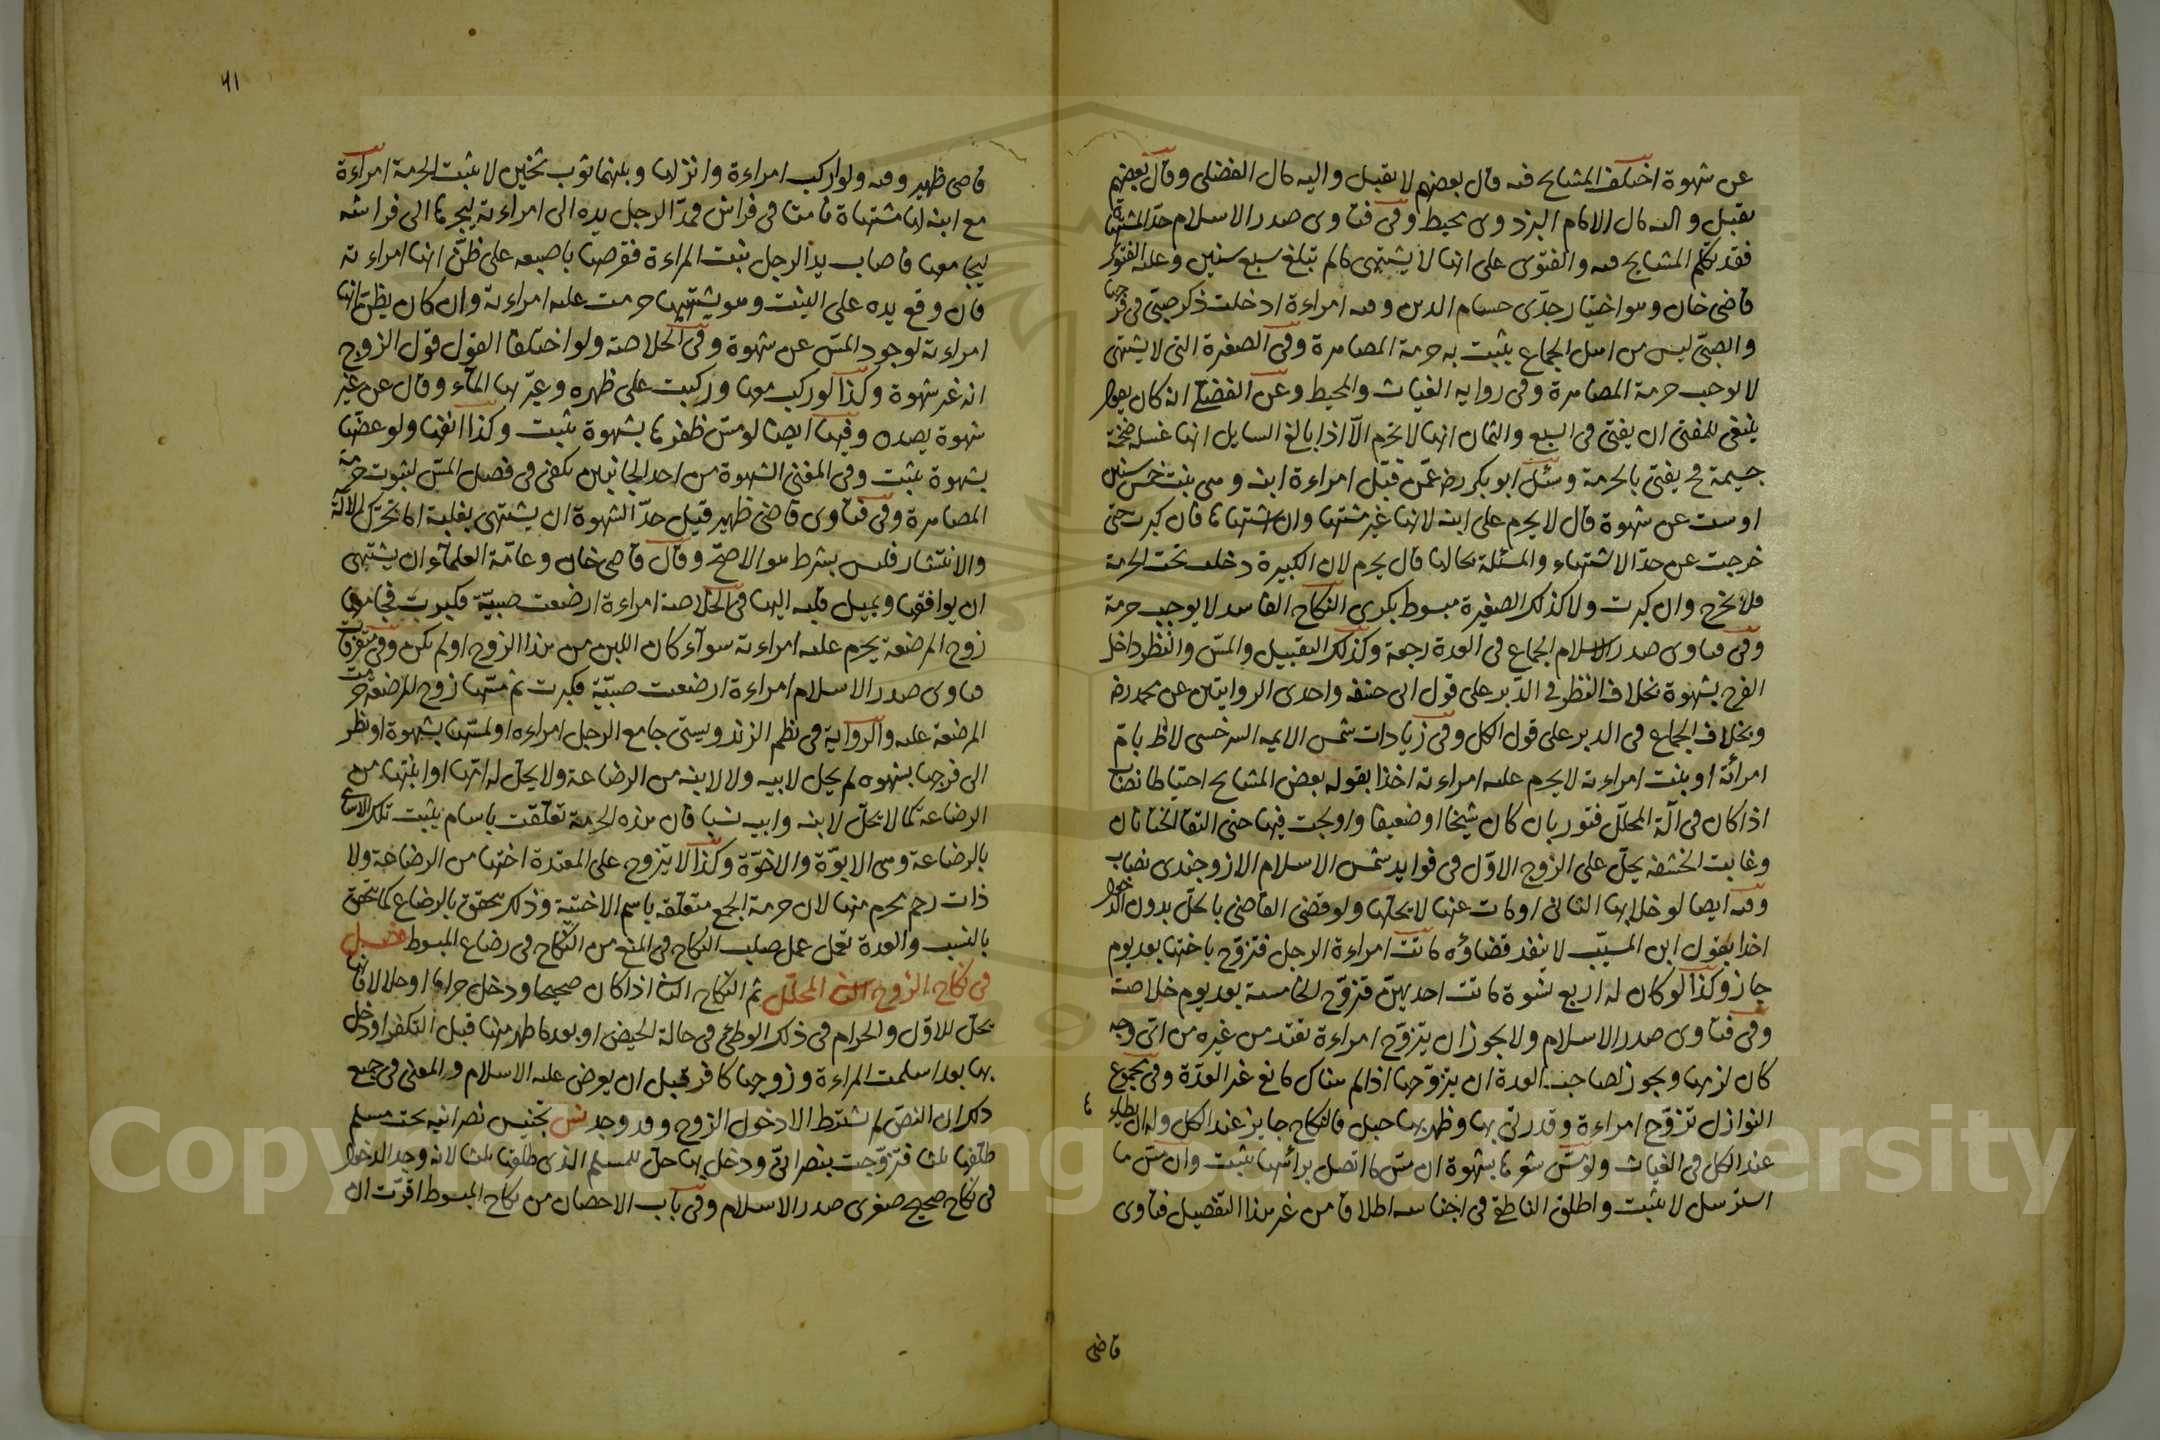 عن شهوة اختلف المشايخ فيه قال بعضهم لا يقبل واليه مال الفضلى وقال بعضهم
يقبل واليه مال الامام البزدوى محيط وفى فتاوى صدر الاسلام حدّ المشتهاة
فقد تكلم المشايخ فيه والفتوى على انها لا يشتهى مالم تبلغ سبع سنين وعليه الفتوى
قاضى خان وهو اختيار جدّى حسام الدين وفيه امراءة ادخلت ذكر صبىّ فى فرجها
والصبىّ ليس من اهل الجماع يثبت به حرمة المصاهرة وفى الصغيرة التى لا يشتهى
لا يوجب حرمة المصاهرة وفى رواية الغياث والمحيط وعن الفضلى انه كان يقول
ينبغى للمفتى ان يفتى فى السبع والثمان انها لا تحرم الّا اذا بالغ السايل انها عبلة ضخمة
جسيمة ح يفتى بالحرمة وسئل ابو بكر رض عمّن قبّل امراءة ابنه وهى بنت خمس سنين
او ست عن شهوة قال لا يحرم على ابنه لانها غير مشتهاة وان اشتهاها فان كبرت حتى
خرجت عن حدّ الاشتهاء والمسئلة بحالها قال يحرم لان الكبيرة دخلت تحت الحرمة
فلا تخرج وان كبرت ولا كذلك الصغيرة مبسوط بكرى النكاح الفاسد لا يوجب حرمة
وفى فتاوى صدر الاسلام الجماع فى العدة رجعة وكذلك التقبيل والمسّ والنظر داخل
الفرج بشهوة بخلاف النظر فى الدّبر على قول ابى حنيفه واحدى الروايتين عن محمد رض
وبخلاف الجماع فى الدبر على قول الكل وفى زيادات شمس الايمه السرخسى لاظ بامّ
امرأته او بنت امراءته لا يحرم عليه امراءته اخذا بقوله بعض المشايخ احتياطا نصاب
اذا كان فى آلة المحلّل فتور بان كان شيخا او ضعيفا واولجت فيها حتى التقا الختانان
وغابت الحشفه يحلّ على الزوج الاوّل فى فوايد شمس الاسلام الاوزجندى نصاب
وفيه ايضا لو خلا بها الثانى او مات عنها لا يحلّها ولو قضى القاضى بالحلّ بدون الدخول
اخذا بقول ابن المسيّب لا ينفذ قضاؤه ماتت امراءة الرجل فتزوّج باختها بعد يوم
جاز وكذا لو كان له اربع نسوة ماتت احديهنّ فتزوّج الخامسة بعد يوم خلاصة
وفى فتاوى صدر الاسلام ولا يجوز ان يتزوّج امراءة تعتد من غيره من اىّ وجه
كان لزمها ويجوز لصاحب العدة ان يتزوّجها اذا لم هناك مانع غير العدّة وفى مجموع
النوازل تزوّج امراءة وقد زنى بها وظهر بها حبل فالنكاح جايز عند الكل وله ان يطاء
عند الكل فى الغياث ولو مسّ شعرها بشهوة ان مسّ ما اتصل برأسها يثبت وان مسّ ما
استرسل لا يثبت واطلق الناطفى فى اجناسه اطلاقا من غير هذا التفصيل فتاوى
قاضى
٤١
قاضى ظهير وفيه ولو اركب امراءة وانزلها وبينهما ثوب ثخين لا يثبت الحرمة امراءة
مع ابنة لها مشتهاة نامتا فى فراش فمدّ الرجل يده الى امراءته ليجرها الى فراشه
ليجامعها فاصاب يد الرجل بنت المراءة فقرصها باصبعه على ظنّ انها امراءته
فان وقع يده على البنت وهو يشتهيها حرمت عليه امراءته وان كان يظنّ انها
امراءته لوجود المسّ عن شهوة وفى الخلاصة ولو اختلفا القول قول الزوج
انه غير شهوة وكذا لو ركب معها وركبت على ظهره وعبّر بها الماء وقال عن غير
شهوة يصدق وفيها ايضا لو مسّ ظفرها بشهوة يثبت وكذا انفها ولو عضّها
بشهوة يثبت وفى المغنى الشهوة من احد الجانبين يكفى فى فصل المسّ لثبوت حرمة
المصاهرة وفى فتاوى قاضى ظهير قيل حدّ الشهوة ان يشتهى بقلبه اما تحرّك الآلة
والانتشار فليس بشرط هو الاصحّ وقال قاضى خان وعامّة العلماء ان يشتهى
ان يواقعها ويميل قلبه اليها فى الخلاصة امراءة ارضعت صبيّة فكبرت فجامعها
زوج المرضعة يحرم عليه امراءته سوآء كان اللبن من هذا الزوج او لم يكن وفى متفرقات
فتاوى صدر الاسلام امراءة ارضعت صبيّة فكبرت ثم مسّها زوج المرضعة حرمت
المرضعة عليه والرواية فى نظم الزندويستى جامع الرجل امراءه او لمسها بشهوة او نظر
الى فرجها بشهوه لم يحل لابيه ولا لابنه من الرضاعة ولا يحلّ له امّها او ابنتها من
الرضاعة كما لا يحلّ لابنه وابيه نسبا فان هذه الحرمة تعلّقت باسام يثبت تلك الاسامى
بالرضاعة وهى الابوّة والاخوّة وكذا لا يتزوج على المعتدة اختها من الرضاعة ولا
ذات رحم محرم منها لان حرمة الجمع متعلقه باسم الاختيّة وذلك يتحقق بالرضاع كما يتحقق
بالنسب والعدة تعمل عمل صلب النكاح فى المنع من النّكاح فى رضاع المبسوط فصل
فى نكاح الزوج الثانى المحلّل ثم النّكاح الثانى اذا كان صحيحا ودخل حراما او حلالا فانها
يحلّ للاوّل والحرام فى ذلك الوطىء فى حالة الحيض او بعد ما ظاهر منها قبل التكفير او دخل
بها بعد اسلمت المراءة وزوجها كافر قبل ان يعرض عليه الاسلام والمعنى فى جميع
ذلك ان النصّ لم يشترط الا دخول الزوج وقد وجد تجنيس نصرانيه تحت مسلم
طلّقها ثلثا فتزوّجت بنصرانىّ ودخل بها حلّ للمسلم الذى طلقها ثلثا لانه وجد الدخول
فى نكاح صحيح صغرى صدر الاسلام وفى باب الاحصان من نكاح المبسوط اقرّت ان
Copyright © King Saud University